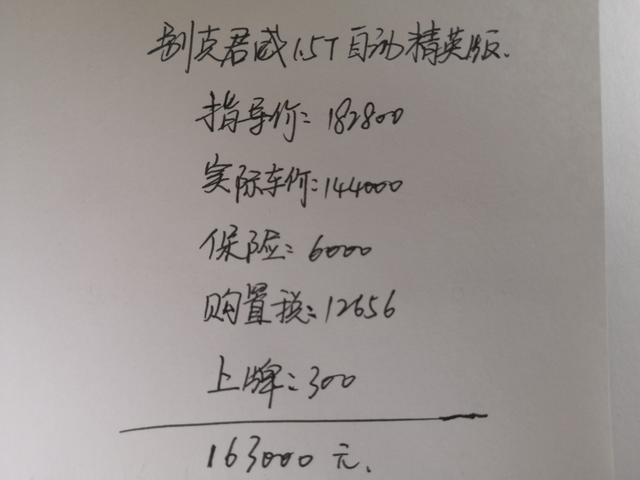 别克君威1.5T自动精英版.
指导价:182800
实际车价:144000
保险:6000
购置税:12656
上牌:300
163000元.